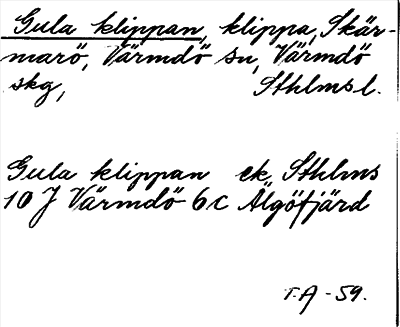 Gula klippan, klippa, Skär-
marö, Värmdö sn, Värmdö
skg, Sthlms l.
Gula klippan ek. Sthlms
10 J Värmdö 6 c Älgöfjärd
T.A - 59.